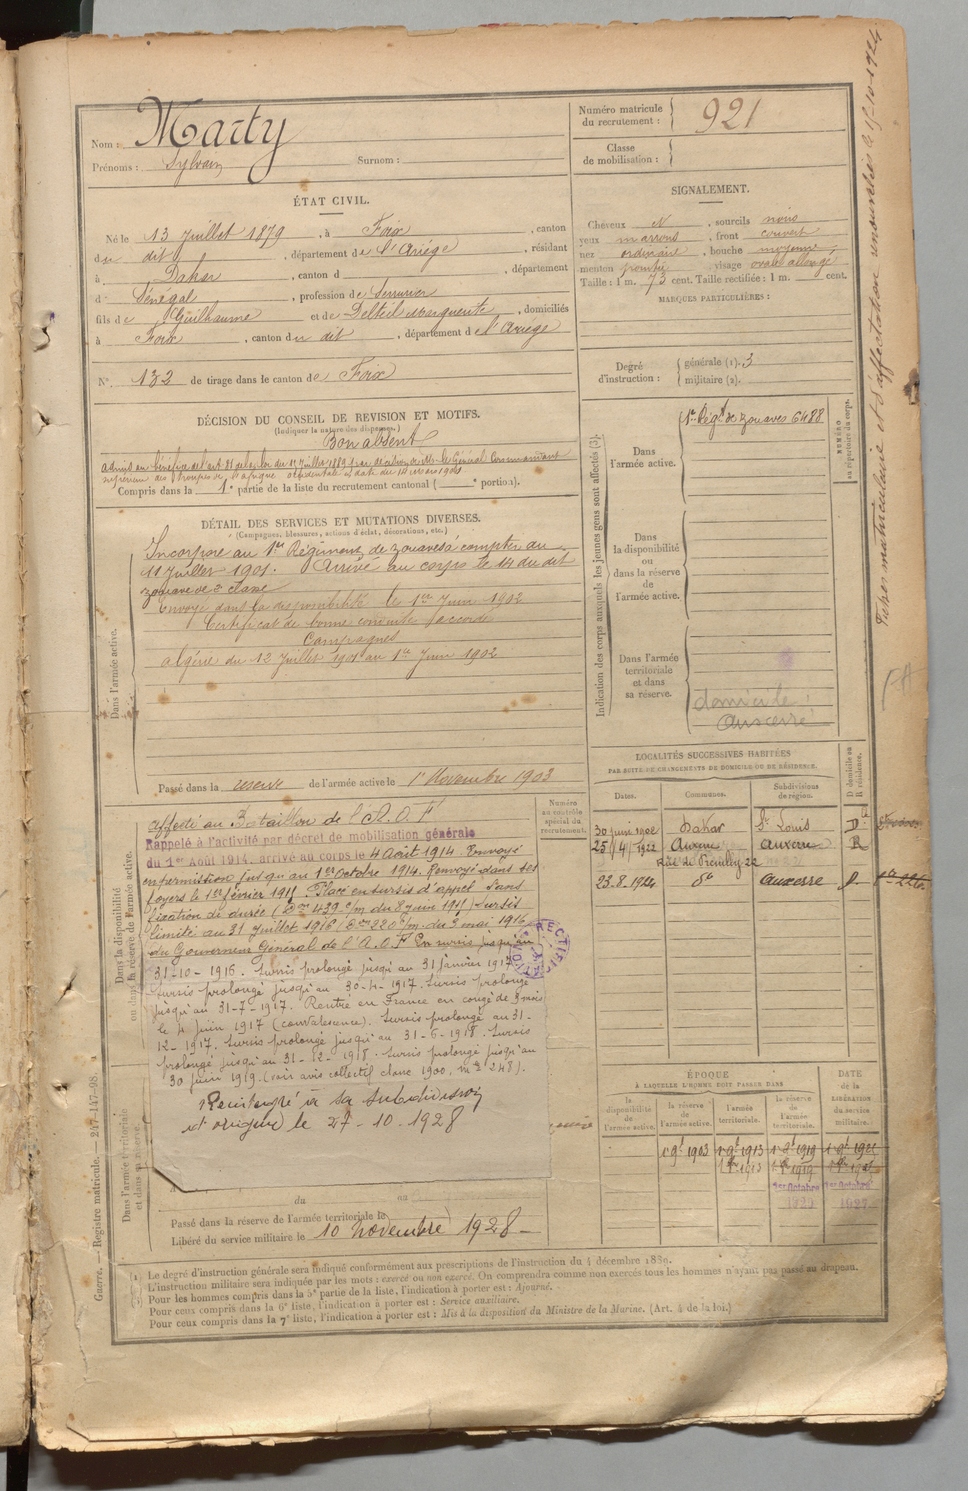 Nom : Marty
Prénoms : Sylvain Surnom :
Numéro matricule
du recrutement : 921
Classe
de mobilisation :
ÉTAT CIVIL.
Né le 13 Juillet 1879, à Foix, canton
du dit, département de l'Ariège, résidant
à Dakar, canton d , département
d Sénégal, profession de Serrurier
fils de Guilhaume et de Delteil Marguerite, domiciliés
à Foix, canton du dit, département de l'Ariège
N° 132 de tirage dans le canton de Foix
SIGNALEMENT.
Cheveux N, sourcils noirs
yeux marrons, front couvert
nez ordinaire, bouche moyenne
menton pointu visage ovale allongé
Taille : 1 m. 73 cent. Taille rectifiée : 1 m. cent.
MARQUES PARTICULIÈRES :
Degré
d'instruction :
générale (1). 3
militaire (2).
DÉCISION DU CONSEIL DE REVISION ET MOTIFS.
(Indiquer la nature des dispenses.)
Bon absent
Admis au bénéfice de l'art. 81 de la loi du 15 Juillet 1889 par décision de Mr le Général Commandant
supérieur des Troupes de l'Afrique occidentale en date du 14 mars 1901
Compris dans la 1e partie de la liste du recrutement cantonal ( e portion).
DÉTAIL DES SERVICES ET MUTATIONS DIVERSES.
(Campagnes, blessures, actions d'éclat, décorations, etc.)
Dans l'armée active.
Incorporé au 1er Régiment de zouaves à compter du
11 Juillet 1901. Arrivé au corps le 14 du dit
zouave de 2e classe
Envoyé dans la disponibilité le 1er Juin 1902
Certificat de bonne conduite accordé
Campagnes
Algérie du 12 Juillet 1901 au 1er Juin 1902
Passé dans la réserve de l'armée active le 1er Novembre 1903
Indication des corps auxquels les jeunes gens sont affectés (3).
Dans
l'armée active.
1er Régt de zouaves 6488
NUMÉRO
au répertoire du corps.
Dans
la disponibilité
ou
dans la réserve
de
l'armée active.
Dans l'armée
territoriale
et dans
sa réserve.
domicile :
Auxerre
Fiches matriculaire et d'affectation renouvelées le 15-10-1924
Dans la disponibilité
ou dans la réserve de l'armée active.
Numéro
au contrôle
spécial du
recrutement.
affecté au Bataillon de l'A.O.F
Rappelé à l'activité par décret de mobilisation générale
du 1er Août 1914. arrivé au corps le 4 Août 1914. Envoyé
en permission jusqu'au 1er Octobre 1914. Renvoyé dans ses
foyers le 1er février 1915. Placé en sursis d'appel sans
fixation de durée (Don 439 c/m du 8 juin 1915) Sursis
limité au 31 Juillet 1916 (Don 220 c/m du 3 mai 1916
du Gouverneur Général de l'A.O.F En sursis jusqu'au
31-10-1916. Sursis prolongé jusqu'au 31 Janvier 1917
Sursis prolongé jusqu'au 30-4-1917. Sursis prolongé
jusqu'au 31-7-1917. Rentré en France en congé de 3 mois
le 4 Juin 1917 (convalescence). Sursis prolongé au 31-
12-1917. Sursis prolongé jusqu'au 31-6-1918. Sursis
prolongé jusqu'au 31-12-1918. Sursis prolongé jusqu'au
30 Juin 1919. (voir avis collectif classe 1900, Mle 248).
RECTIFICATION
Réintégré à sa subdivision
d'origine le 27-10-1928
LOCALITÉS SUCCESSIVES HABITÉES
PAR SUITE DE CHANGEMENTS DE DOMICILE OU DE RÉSIDENCE.
Dates. Communes. Subdivisions de région. D domicile ou R résidence.
30 juin 1902 Dakar St Louis D
25/4/1922 Auxerre Auxerre R
Rue de Preuilly 22
23.8.1924 do Auxerre D
ÉPOQUE
À LAQUELLE L'HOMME DOIT PASSER DANS
DATE
de la
LIBÉRATION
du service
militaire.
la disponibilité de l'armée active.
la réserve de l'armée active.
l'armée territoriale.
la réserve de l'armée territoriale.
1 9bre 1903 1 9bre 1913 1 9bre 1919
1er Octobre
Dans l'armée territoriale
et dans sa réserve.
du au
Passé dans la réserve de l'armée territoriale le
Libéré du service militaire le 10 novembre 1928
Guerre. — Registre matricule. — 217-147-98.
Le degré d'instruction générale sera indiqué conformément aux prescriptions de l'instruction du 4 décembre 1889.
L'instruction militaire sera indiquée par les mots : exercé ou non exercé. On comprendra comme non exercés tous les hommes n'ayant pas passé au drapeau.
Pour les hommes compris dans la 5e partie de la liste, l'indication à porter est : Ajourné.
Pour ceux compris dans la 6e liste, l'indication à porter est : Service auxiliaire.
Pour ceux compris dans la 7e liste, l'indication à porter est : Mis à la disposition du Ministre de la Marine. (Art. 4 de la loi.)